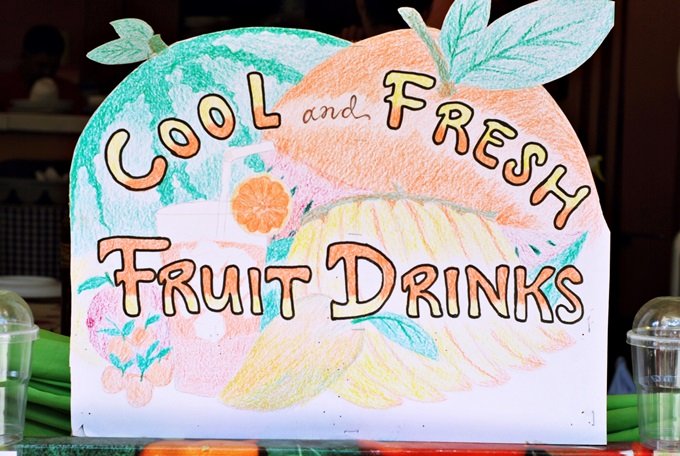 COOL and FRESH
FRUIT DRINKS